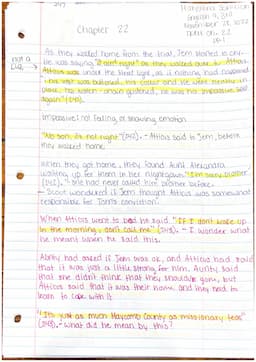 Chapter 22
English 9,
November
TKAM Ch. 22
pg. 1
not a
D.Q. →
As they walked home from the trial, Jem started to cry.
He was saying "It ain't right" as they walked over to Atticus.
Atticus was under the street light, as if nothing had happened
- his vest was buttoned, his collar and tie were neatly in
place, his watch-chain glistened, he was his impassive self
again" (212).
Impassive: not feeling, or showing emotion
"No son, its not right" (212). - Atticus said to Jem, before
they walked home.
When they got home, they found Aunt Alexandra
waiting up for them in her nightgown. "I'm sorry brother"
(212). "She had never called him brother before.
- Scout wondered if Jem thought Atticus was somewhat
responsible for Tom's conviction.
When Atticus went to bed he said "If I don't wake up
in the morning, don't call me" (213). - I wonder what
he meant when he said this.
Aunty had asked if Jem was ok, and Atticus had said
that it was just a little strong for him. Aunty said
that she didn't think that they should've gone, but
Atticus said that it was their home, and they need to
learn to cope with it.
"It's just as much Maycomb County as missionary teas"
(213). - What did he mean by this?